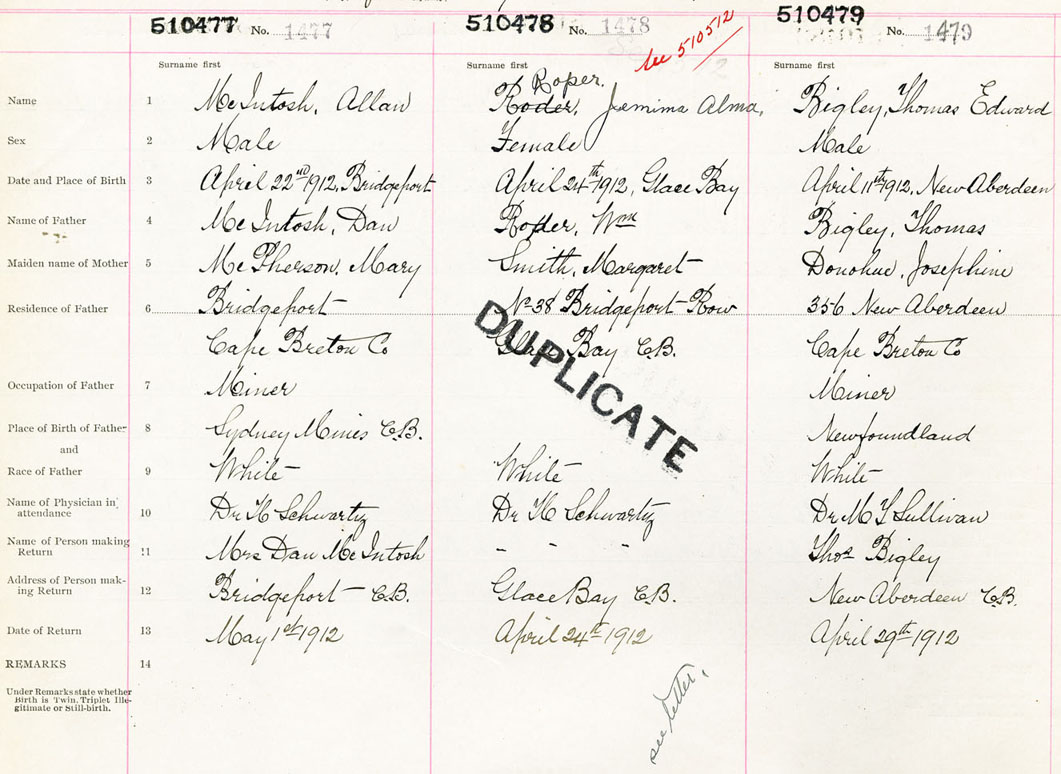 510477 No. 1477 510478 No. 1478 see 510512 510479 No. 1479
Surname first Surname first Surname first
Roper.
Name 1 McIntosh, Allan Roder, Jemima Alma, Bigley, Thomas Edward
Sex 2 Male Female Male
Date and Place of Birth 3 April 22nd 1912, Bridgeport April 24th 1912, Glace Bay April 11th 1912, New Aberdeen
Name of Father 4 McIntosh, Dan Roder, Wm Bigley, Thomas
Maiden name of Mother 5 McPherson, Mary Smith, Margaret Donohue, Josephine
Residence of Father 6 Bridgeport No 38 Bridgeport Row 356 New Aberdeen
Cape Breton Co Glace Bay C.B. Cape Breton Co
DUPLICATE
Occupation of Father 7 Miner Miner
Place of Birth of Father 8 Sydney Mines C.B. Newfoundland
and
Race of Father 9 White White White
Name of Physician in
attendance 10 Dr H Schwartz Dr H Schwartz Dr M Sullivan
Name of Person making
Return 11 Mrs Dan McIntosh - - - Thos Bigley
Address of Person mak-
ing Return 12 Bridgeport C.B. Glace Bay C.B. New Aberdeen C.B.
Date of Return 13 May 1st 1912 April 24th 1912 April 29th 1912
REMARKS 14
Under Remarks state whether
Birth is Twin, Triplet Ille-
gitimate or Still-birth.
see letter.